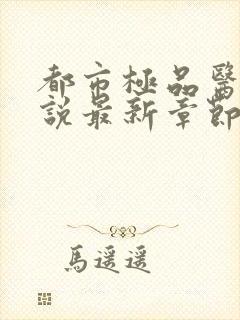 都市極品醫
說最新章節
馬遥遥